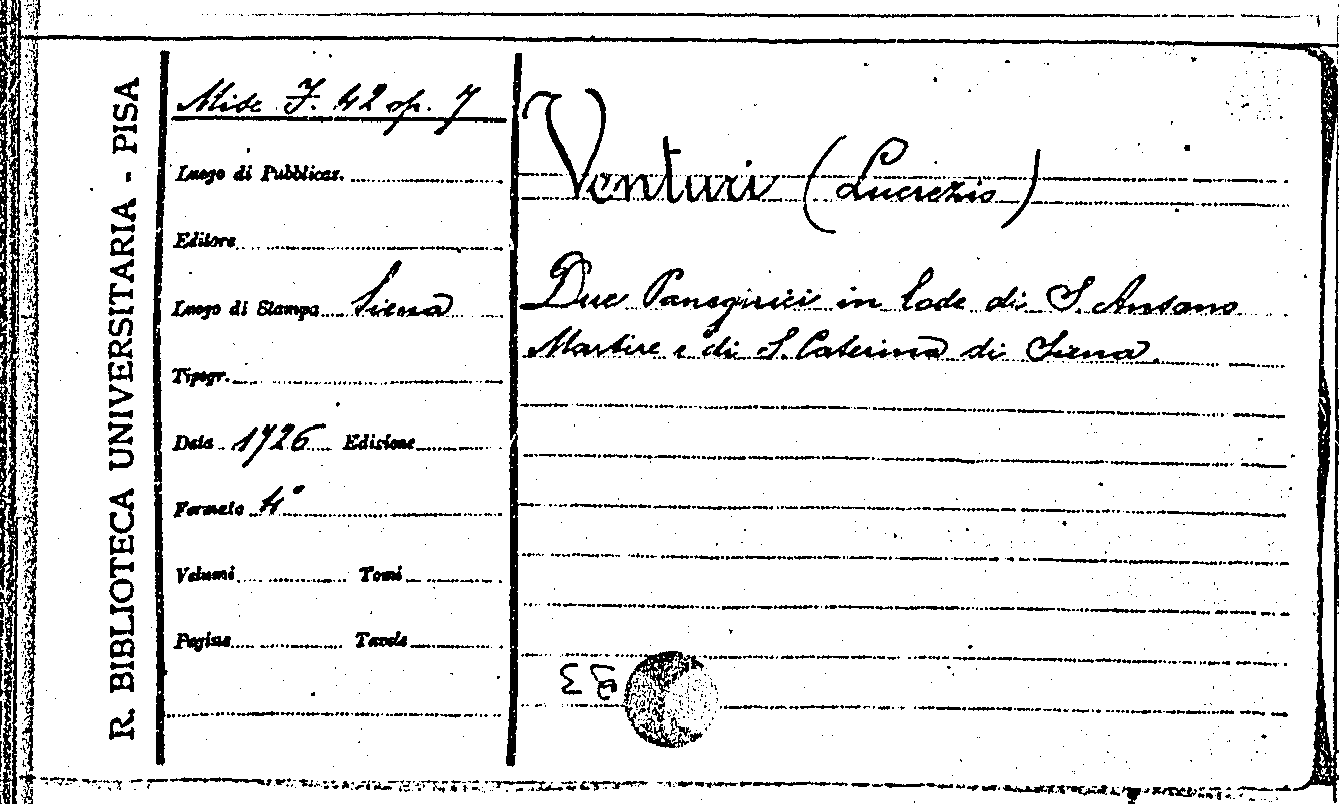 R. BIBLIOTECA UNIVERSITARIA - PISA
Misc. F. 42 op. 7
Luogo di Pubblicaz.
Editore
Luogo di Stampa Siena
Tipogr.
Data 1726 Edizione
Formato 4°
Volumi Tomi
Pagine Tavole
Venturi (Lucrezio)
Due Panegirici in lode di S. Ansano
Martire e di S. Caterina di Siena.